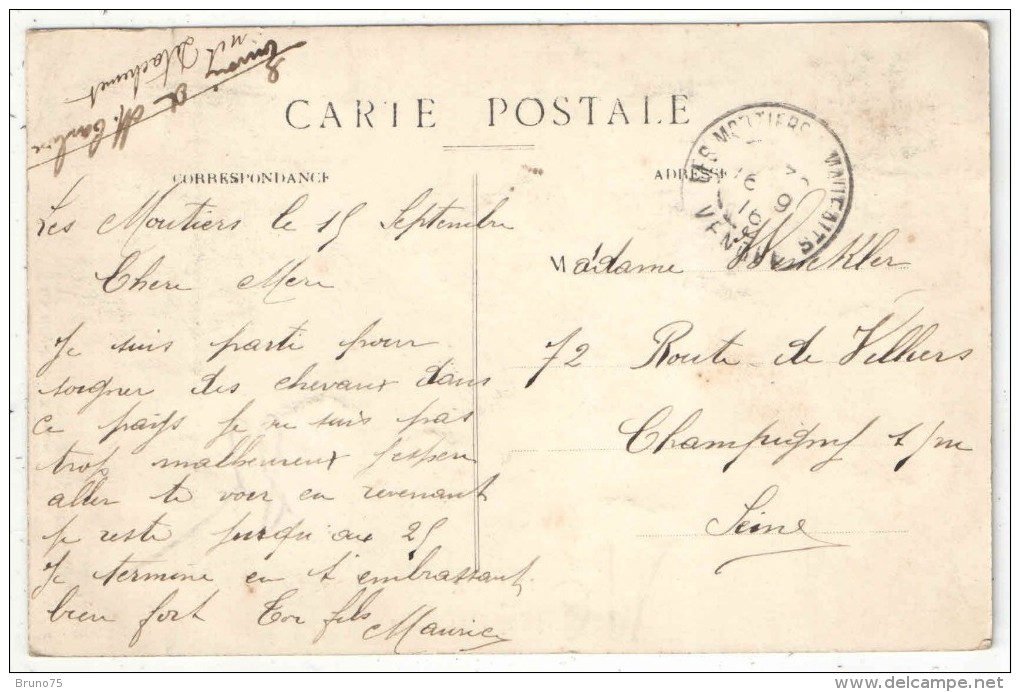 CARTE POSTALE
CORRESPONDANCE
ADRESSE
LES MOUTIERS - MAUFAITS
VENDÉE
16 9
16
Les Moutiers le 15 Septembre
Chere Mere
Je suis parti pour
soigner des chevaux dans
ce pays je ne suis pas
trop malheureux j'espere
aller te voir en revenant
Je reste jusqu'au 25
Je termine en t embrassant
bien fort Ton fils
Maurice
Madame Winckler
72 Route de Villiers
Champigny s/m
Seine
Bruno75
delcampe.net